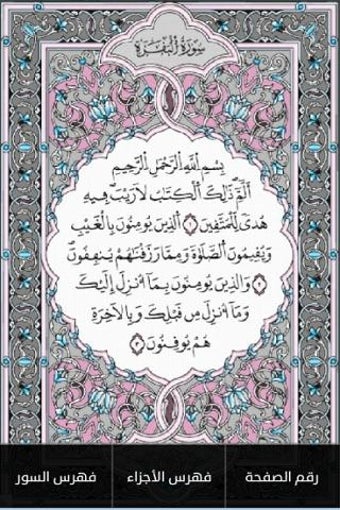 سُورَةُ الْبَقَرَةِ
بِسْمِ اللَّهِ الرَّحْمَٰنِ الرَّحِيمِ
أَلَمِّٓ ذَٰلِكَ الْكِتَٰبُ لَا رَيْبَ فِيهِ
هُدىً لِّلْمُتَّقِينَ ١ الذِينَ يُومِنُونَ بِالْغَيْبِ
وَيُقِيمُونَ الصَّلَوٰةَ وَمِمَّا رَزَقْنَٰهُمْ يُنفِقُونَ
٢ وَالذِينَ يُومِنُونَ بِمَآ أُنزِلَ إِلَيْكَ
وَمَآ أُنزِلَ مِن قَبْلِكَ وَبِالَاخِرَةِ
هُمْ يُوقِنُونَ ٣
رقم الصفحة فهرس الأجزاء فهرس السور